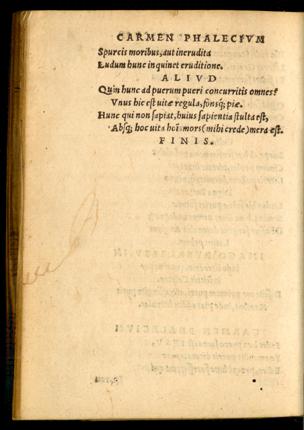 CARMEN PHALECIVM
Spurcis moribus, aut inerudita
Ludum hunc inquinet eruditione.
ALIVD
Quin hunc ad puerum pueri concurritis omnes?
Vnus hic est uitæ regula, fonsq; piæ.
Hunc qui non sapiat, huius sapientia stulta est,
Absq; hoc uita hominis mors (mihi crede) mera est.
FINIS.